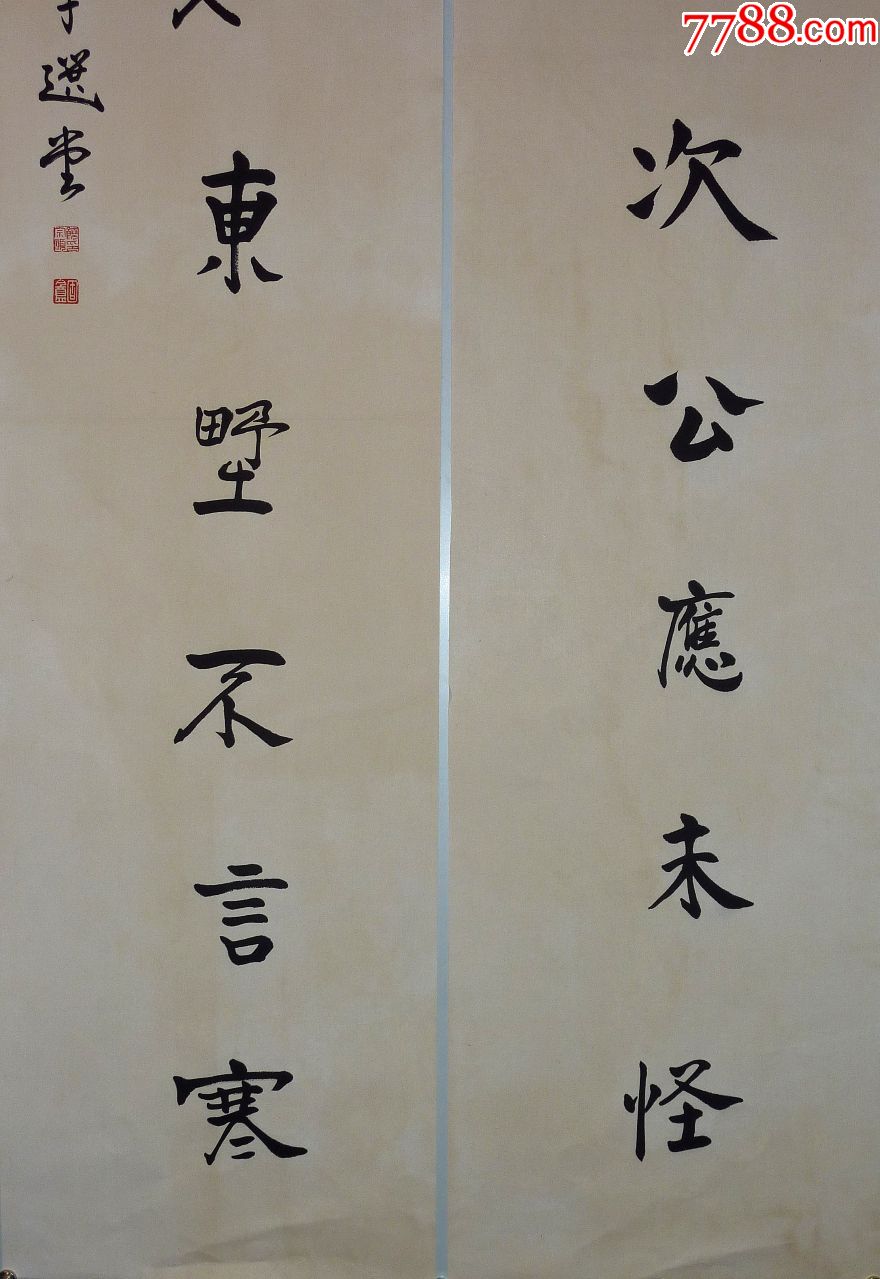 7788.com
次公應未怪
東野不言寒
選堂